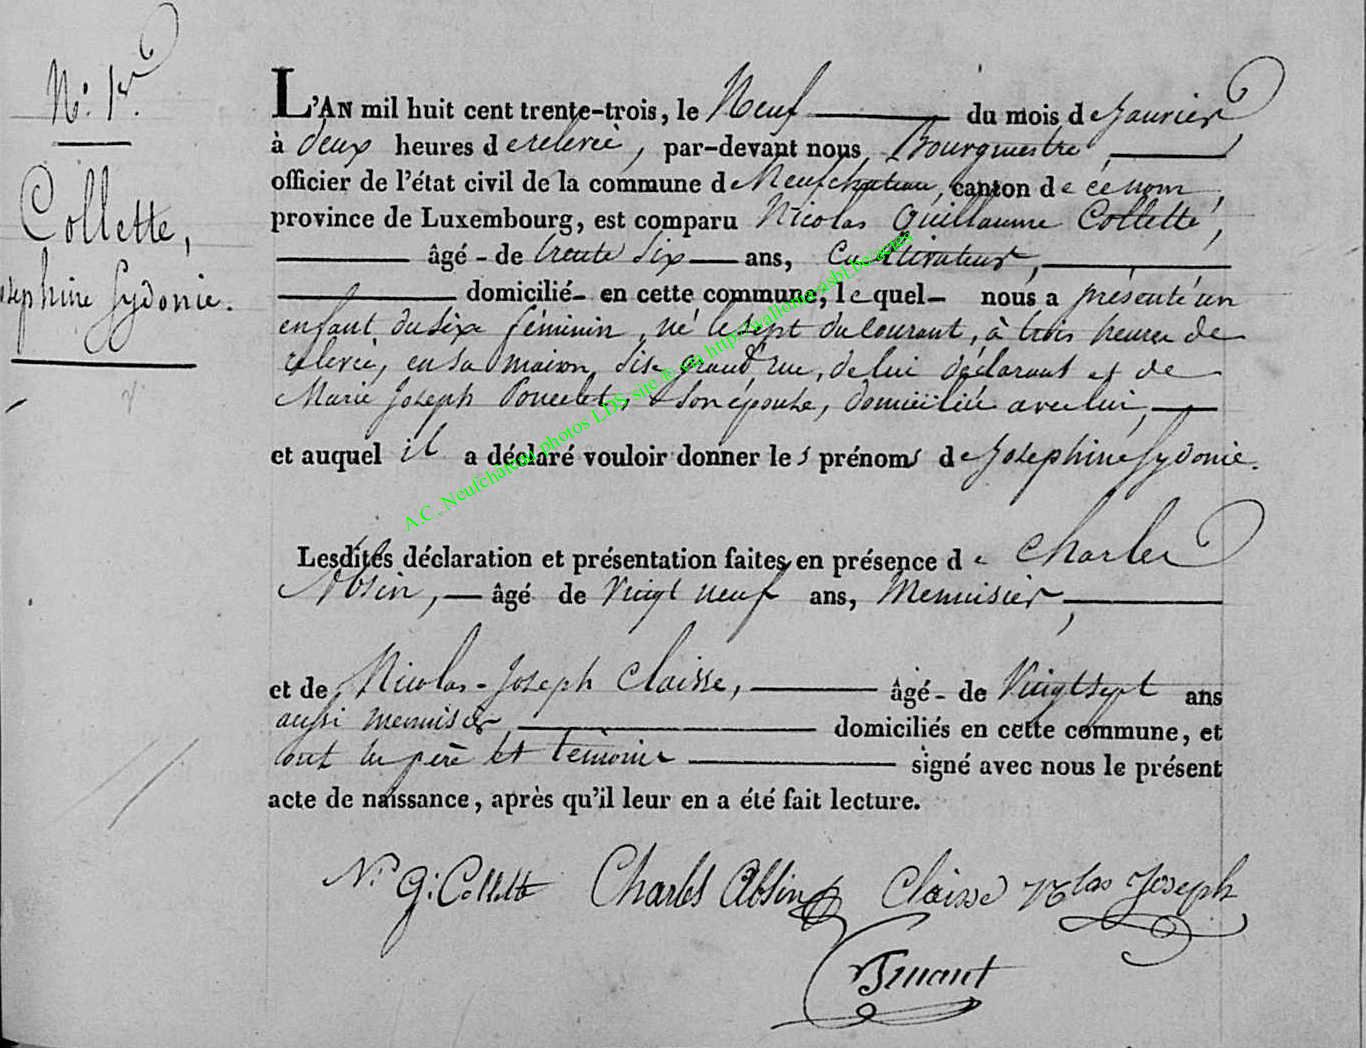 N.º 1er.
Collette,
Josephine Sydonie.
L'AN mil huit cent trente-trois, le Neuf du mois de Janvier,
à deux heures de relevée, par-devant nous Bourgmestre,
officier de l'état civil de la commune de Neufchateau, canton de ce nom,
province de Luxembourg, est comparu Nicolas Guillaume Collette,
âgé - de trente six ans, Cultivateur,
domicilié - en cette commune, lequel - nous a présenté un
enfant du sexe féminin, né le sept du courant, à trois heures de
relevée, en sa maison, sise grand rue, de lui déclarant et de
Marie Joseph Poncelet, son épouse, domiciliée avec lui,
et auquel il a déclaré vouloir donner les prénoms de Josephine Sydonie.
Lesdites déclaration et présentation faites en présence de Charles
Absin, âgé de Vingt neuf ans, Menuisier,
et de Nicolas-Joseph Claisse, âgé - de Vingt sept ans
aussi menuisier domiciliés en cette commune, et
ont les père et témoins signé avec nous le présent
acte de naissance, après qu'il leur en a été fait lecture.
N. G. Collette Charles Absin Claisse Nlas Joseph
A.C. Neufchâteau photos LDS site